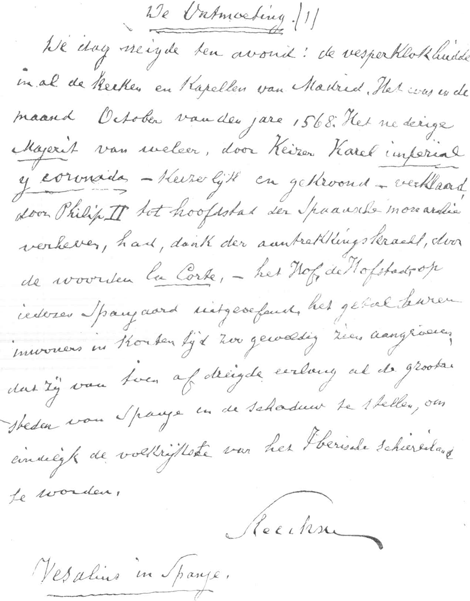 De Ontmoeting. (1)
De dag neigde ten avond: de vesperklok luidde
in al de kerken en kapellen van Madrid. Het was in de
maand October van den jare 1568. Het nederige
Majerit van weleer, door Keizer Karel imperial
y coronada – keizerlijk en gekroond – verklaard,
door Philip II tot hoofstad der Spaansche monarchie
verheven, had, dank der aantrekkingskracht, door
de woorden la Corte, – het Hof, de Hofstad, – op
iederen Spanjaard uitgeoefend, het getal haren
inwoners in korten tijd zoo geweldig zien aangroeien,
dat zij van toen af dreigde eerlang al de groote
steden van Spanje in de schaduw te stellen, om
eindelijk de volkrijkste van het Iberische schiereiland
te worden.
Vesalius in Spanje.